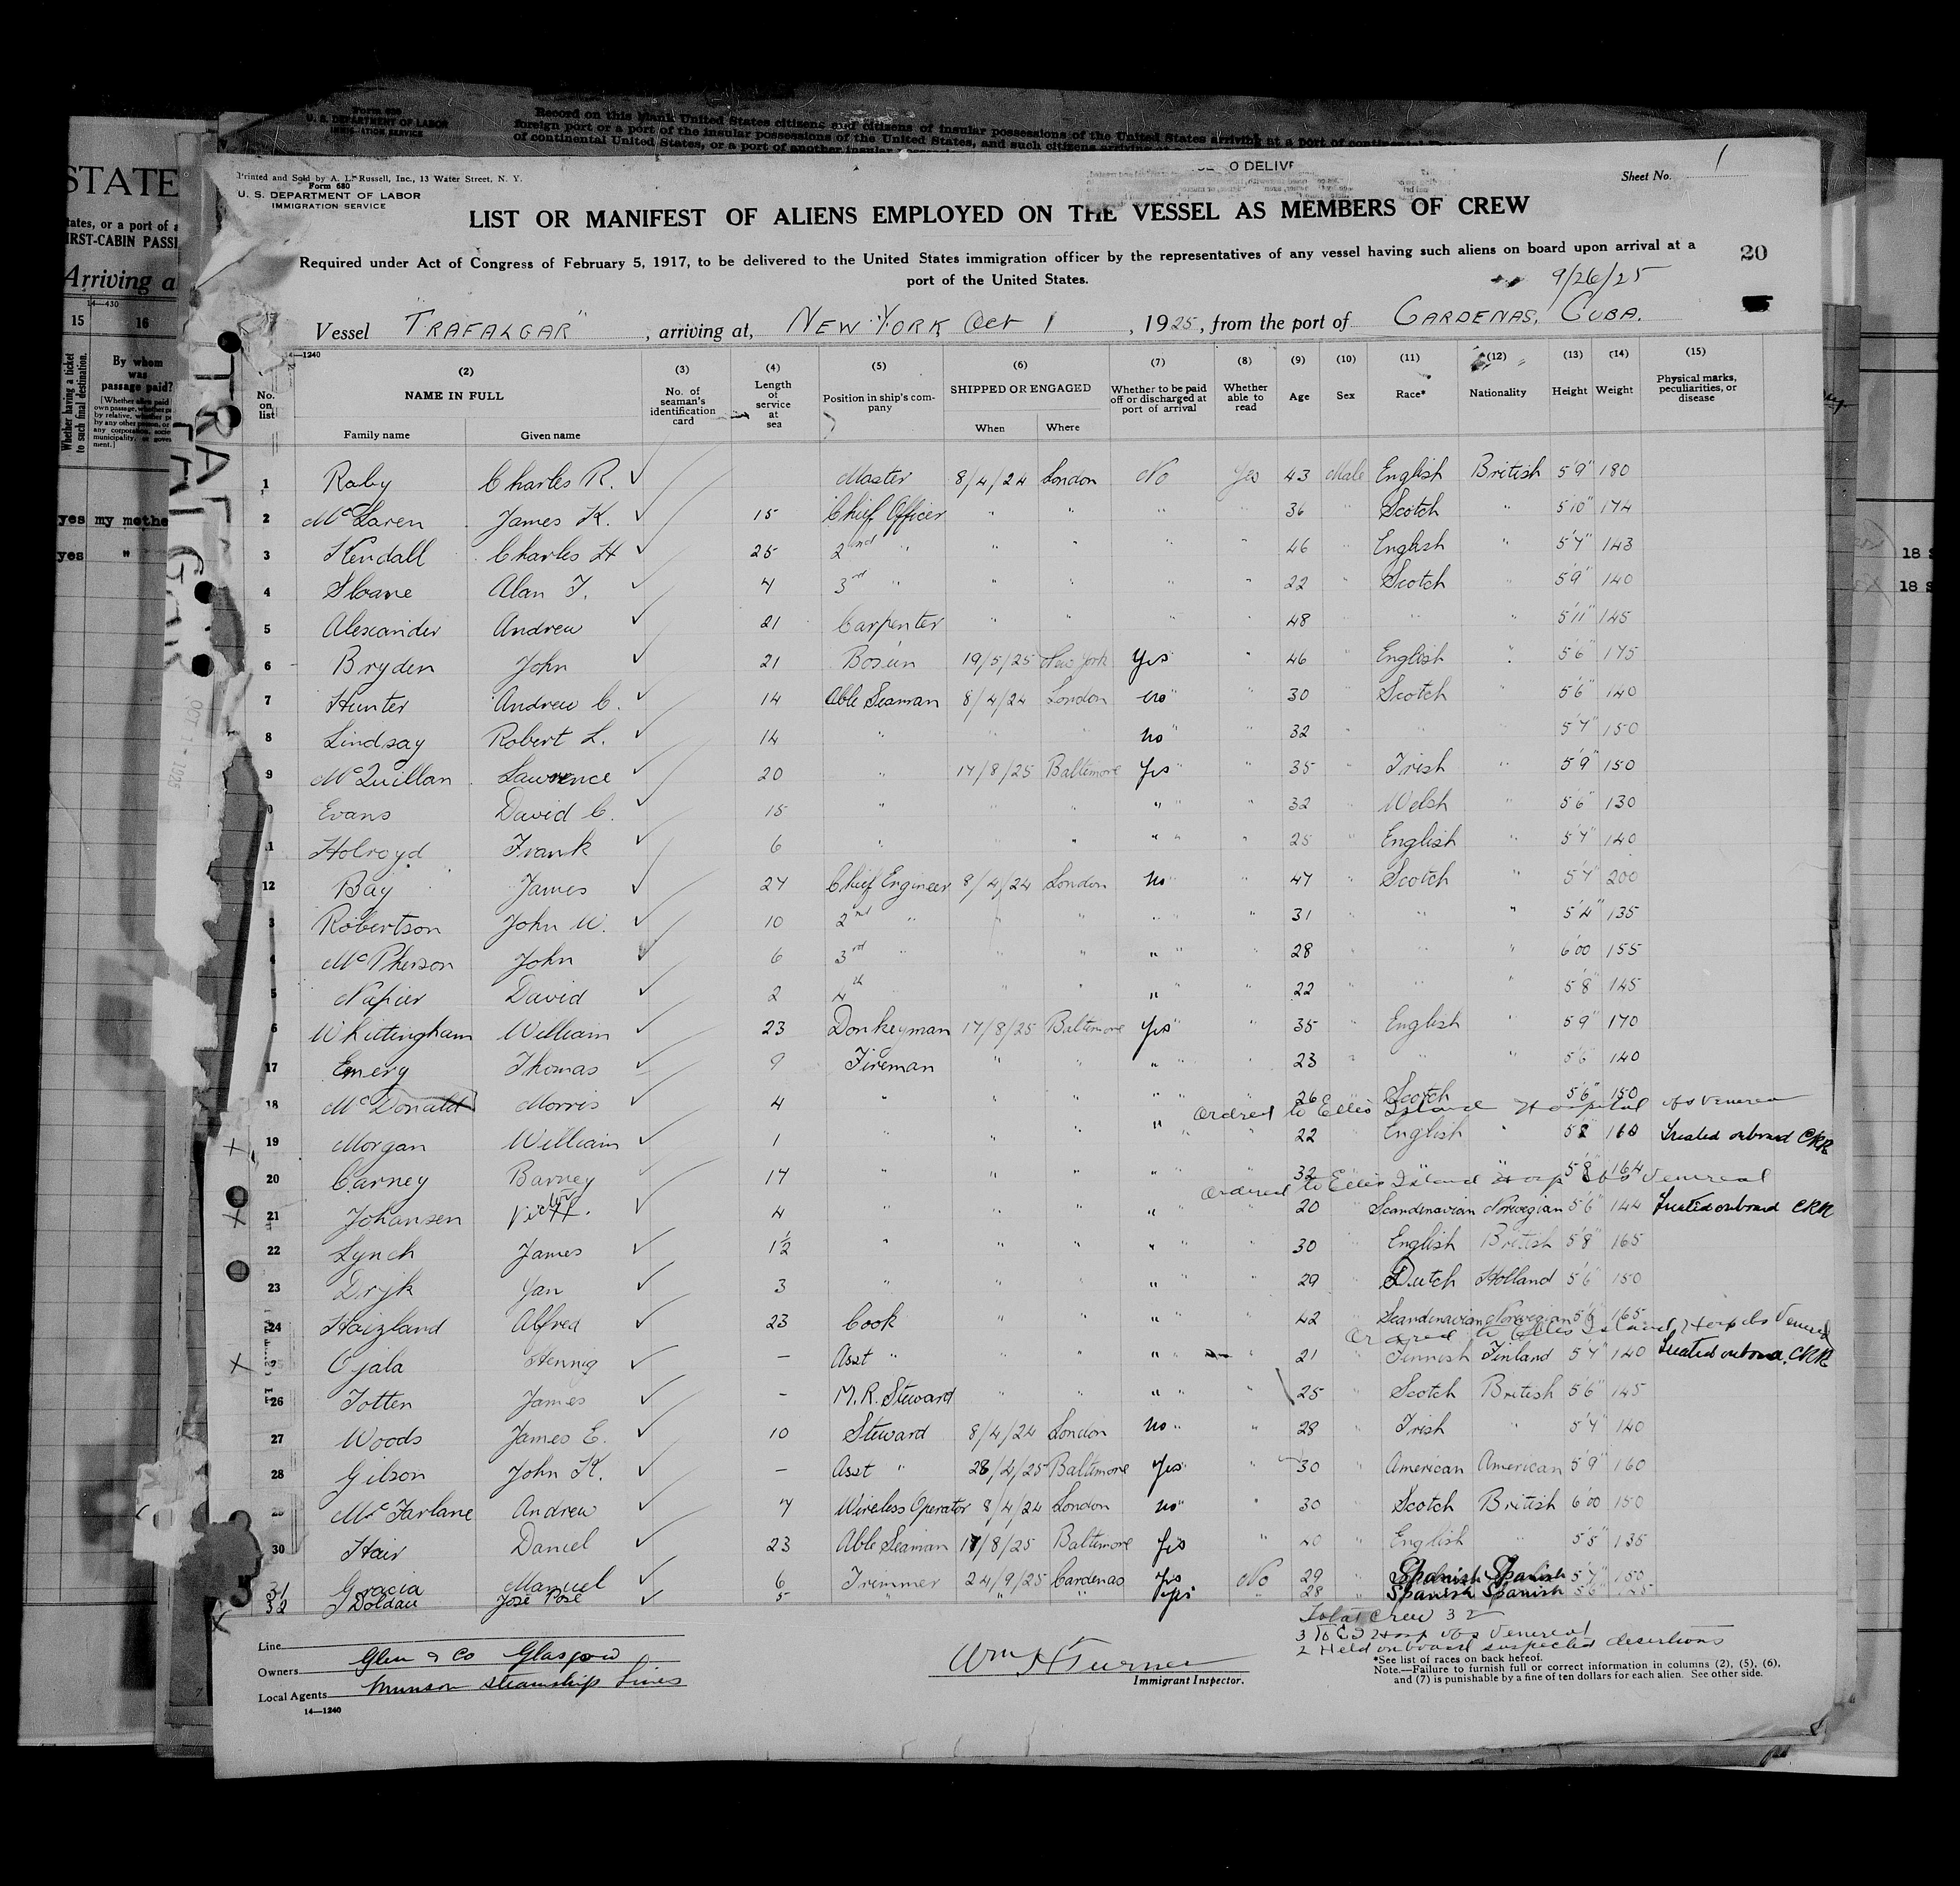 Form 680
U. S. DEPARTMENT OF LABOR
IMMIGRATION SERVICE
Record on this blank United States citizens and citizens of insular possessions of the United States arriving at a port of continental
foreign port or a port of the insular possessions of the United States, and such citizens
of continental United States, or a port of another insular
STATE
tates, or a port of
IRST-CABIN PASS
Arriving a
14—430
15 16
Whether having a ticket to such final destination.
By whom was passage paid?
yes my mothe
yes "
TRAFALGAR
OCT 1 - 1925
18
18
Printed and Sold by A. L. Russell, Inc., 13 Water Street, N. Y.
Form 680
U. S. DEPARTMENT OF LABOR
IMMIGRATION SERVICE
O DELIV
Sheet No. 1
LIST OR MANIFEST OF ALIENS EMPLOYED ON THE VESSEL AS MEMBERS OF CREW
Required under Act of Congress of February 5, 1917, to be delivered to the United States immigration officer by the representatives of any vessel having such aliens on board upon arrival at a
port of the United States.
20
9/26/25
Vessel "TRAFALGAR", arriving at, NEW YORK Oct 1, 1925, from the port of CARDENAS, CUBA.
14—1240
(2) (3) (4) (5) (6) (7) (8) (9) (10) (11) (12) (13) (14) (15)
No. on list NAME IN FULL Family name Given name No. of seaman's identification card Length of service at sea Position in ship's company SHIPPED OR ENGAGED When Where Whether to be paid off or discharged at port of arrival Whether able to read Age Sex Race* Nationality Height Weight Physical marks, peculiarities, or disease
1 Raby Charles R. Master 8/4/24 London No Yes 43 Male English British 5'9" 180
2 McLaren James K. 15 Chief Officer " " " " 36 " Scotch " 5'10" 174
3 Kendall Charles H 25 2nd " " " " " 46 " English " 5'7" 143
4 Sloane Alan F. 4 3rd " " " " " 22 " Scotch " 5'9" 140
5 Alexander Andrew 21 Carpenter " " " " 48 " " " 5'11" 145
6 Bryden John 21 Bosun 19/5/25 New York Yes " 46 " English " 5'6" 175
7 Hunter Andrew C. 14 Able Seaman 8/4/24 London no " 30 " Scotch " 5'6" 140
8 Lindsay Robert L. 14 " " " no " 32 " " " 5'7" 150
9 McQuillan Lawrence 20 " 17/8/25 Baltimore Yes " 35 " Irish " 5'9" 150
0 Evans David C. 15 " " " " " 32 " Welsh " 5'6" 130
1 Holroyd Frank 6 " " " " " 25 " English " 5'7" 140
12 Bay James 27 Chief Engineer 8/4/24 London no " 47 " Scotch " 5'7" 200
3 Robertson John W. 10 2nd " " " " " 31 " " " 5'4" 135
4 McPherson John 6 3rd " " " " " 28 " " " 6'00 155
5 Napier David 2 4th " " " " 22 " " " 5'8" 145
6 Whittingham William 23 Donkeyman 17/8/25 Baltimore Yes " 35 " English " 5'9" 170
17 Emery Thomas 9 Fireman " " " " 23 " " " 5'6" 140
18 McDonald Morris 4 " " " " " 26 Scotch 5'6" 150
Ordred to Ellis Island Hospital obs venereal
19 Morgan William 1 " " " " 22 English " 5'8 160 Treated onboard CRR
20 Carney Barney 17 " " " " 32 " " 5'8" 164
Ordred to Ellis Island Hosp obs Venereal
21 Johansen Victor 4 " " " " 20 Scandinavian Norwegian 5'6" 144 Treated onboard CRR
22 Lynch James 1½ " " " " 30 English British 5'8" 165
23 Dryk Jan 3 " " " " 29 Dutch Holland 5'6" 150
24 Haizland Alfred 23 Cook " " " " 42 " Scandinavian Norwegian 5'6" 165
Ordred to Ellis Island Hosp obs Venereal
2 Ojala Hennig — Asst " " " " " 21 " Finnish Finland 5'7" 140 Treated onboard CRR
26 Totten James - M. R. Steward " " " 25 " Scotch British 5'6" 145
27 Woods James E. 10 Steward 8/4/24 London no " 28 " Irish " 5'7" 140
28 Gilson John K. — Asst " 28/4/25 Baltimore Yes " 30 " American American 5'9" 160
29 McFarlane Andrew 7 Wireless Operator 8/4/24 London no " 30 " Scotch British 6'00 150
30 Hair Daniel 23 Able Seaman 17/8/25 Baltimore Yes " 40 " English " 5'5" 135
31 Gracia Manuel 6 Trimmer 24/9/25 Cardenas Yes No 29 " Spanish Spanish 5'7" 150
32 José Posé 5 " " " Yes " 28 " Spanish Spanish 5'6"
Total Crew 32
3 To E I Hosp obs Venereal
2 Held onboard suspected desertions
Line
Owners Glen & Co Glasgow
Local Agents Munson Steamship Lines
14—1240
Wm H Turner
Immigrant Inspector.
*See list of races on back hereof.
Note.—Failure to furnish full or correct information in columns (2), (5), (6),
and (7) is punishable by a fine of ten dollars for each alien. See other side.